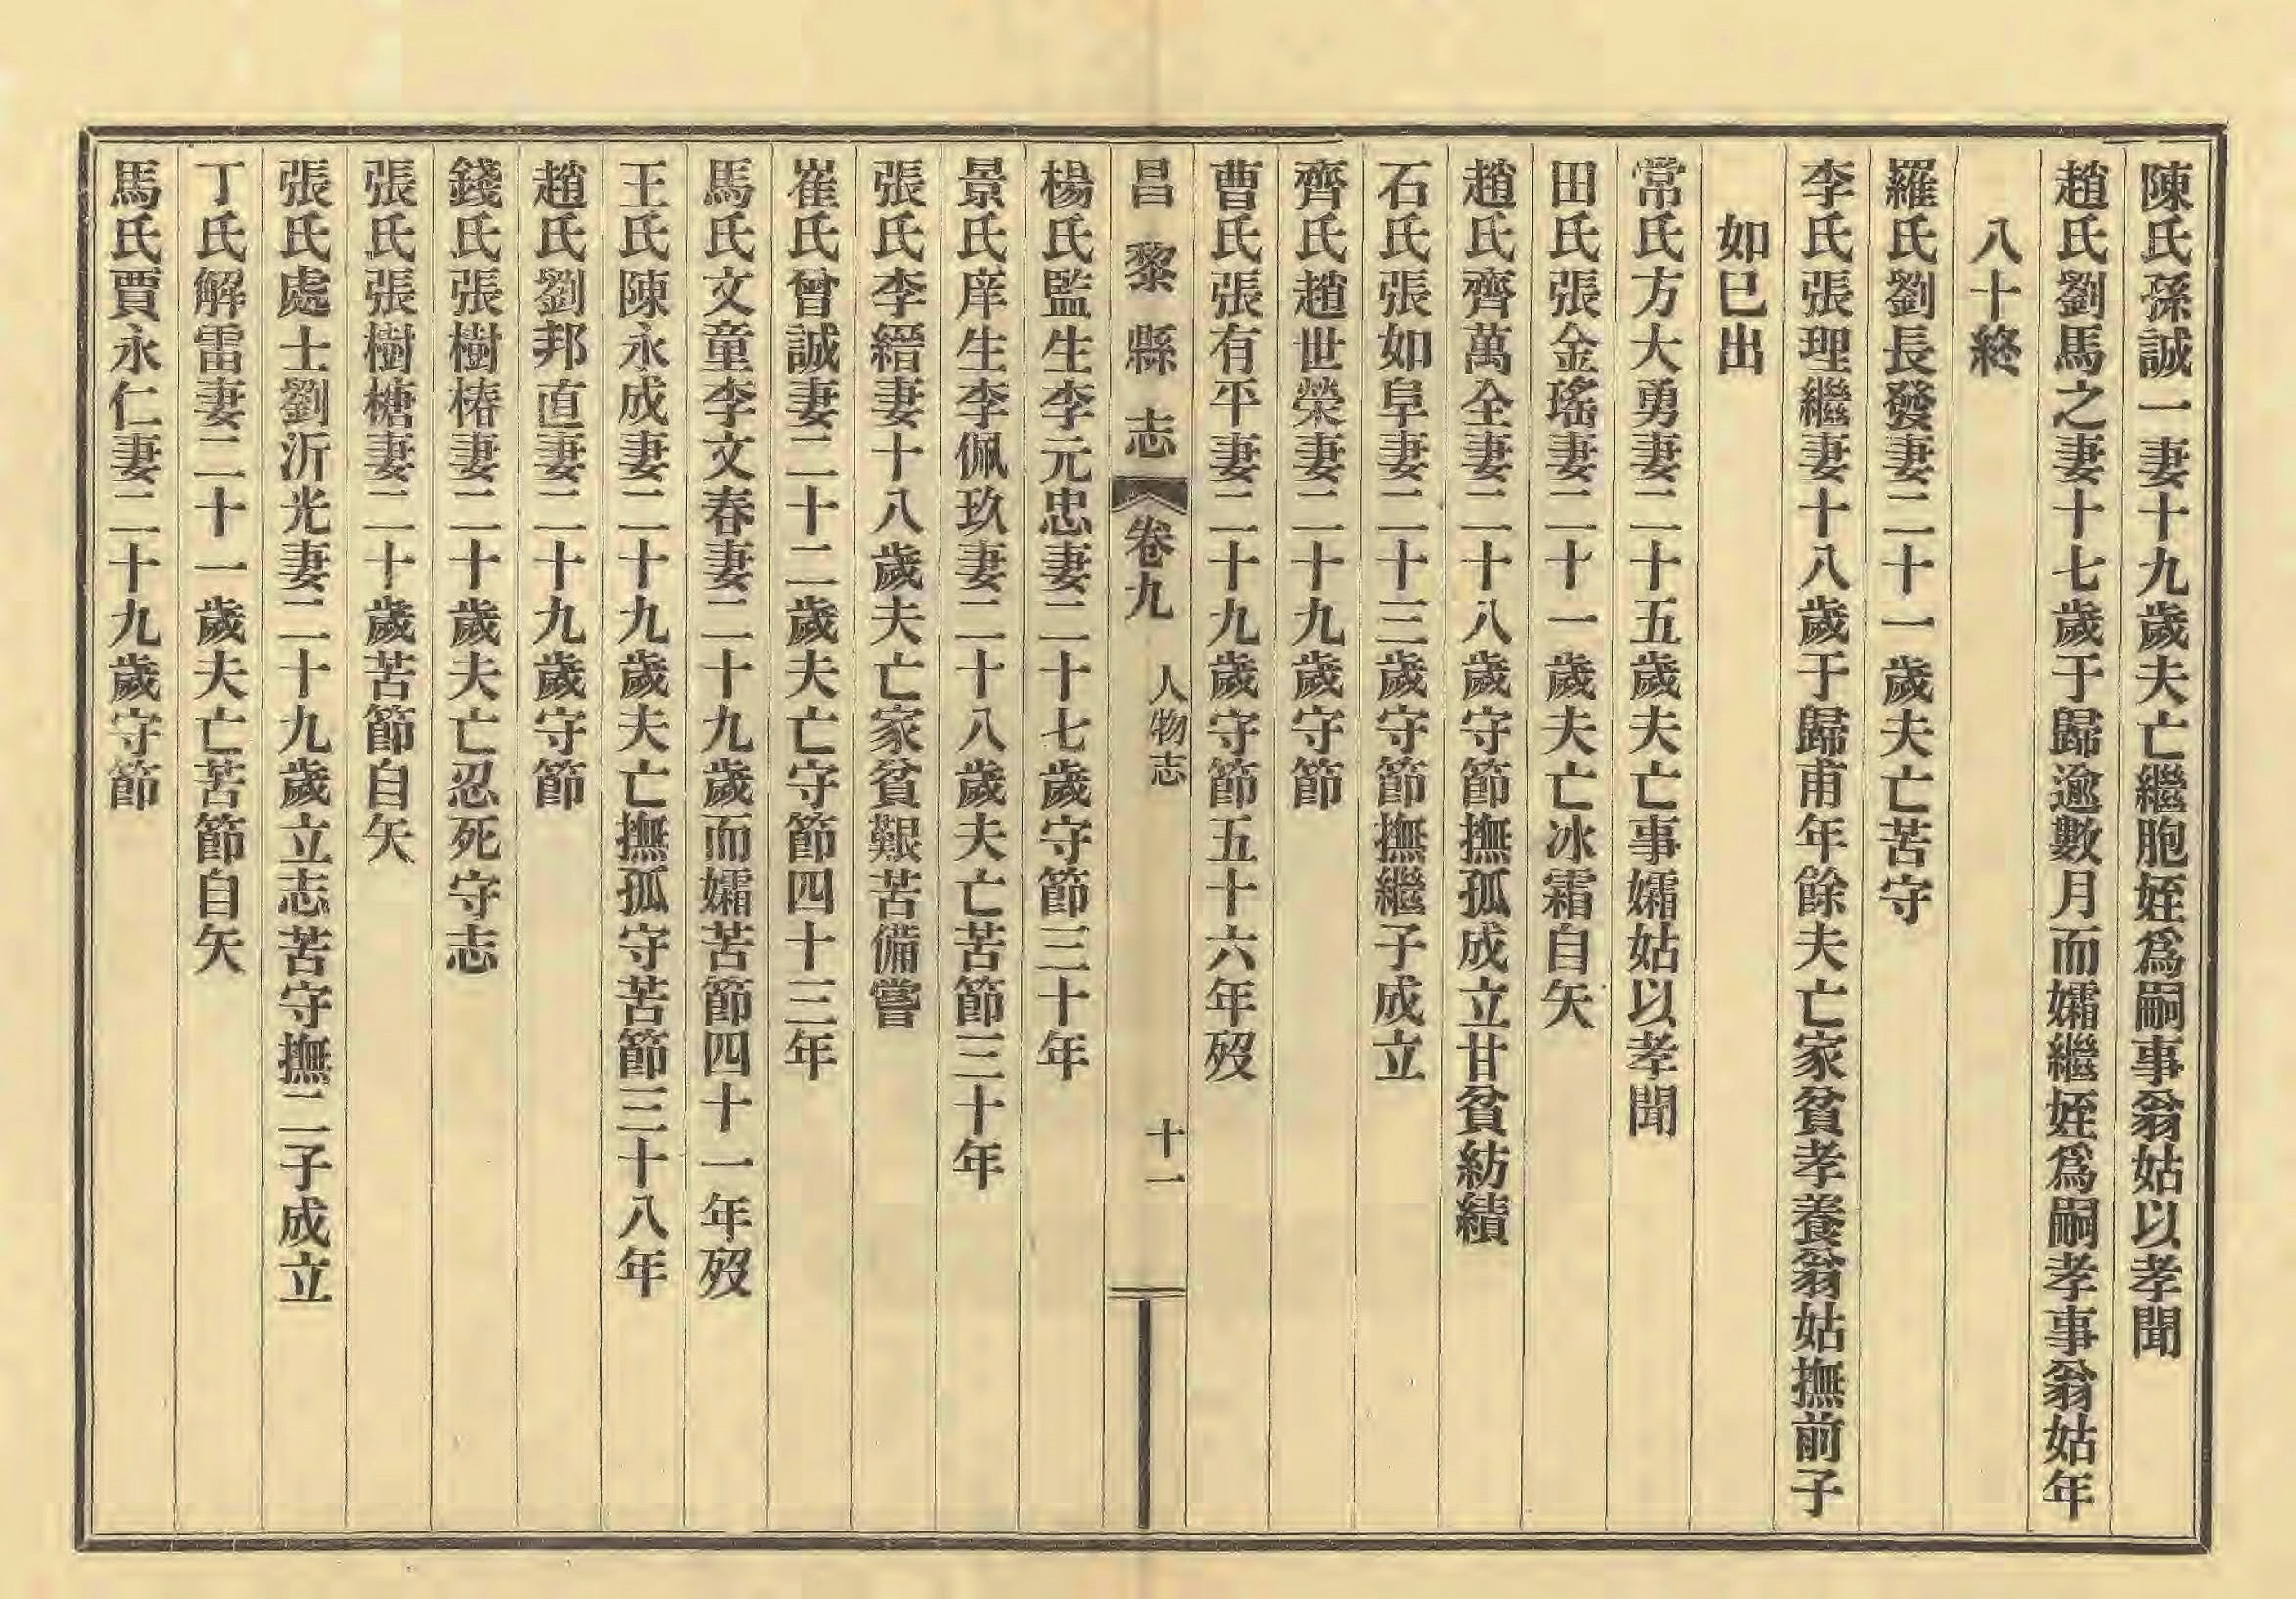 陳氏孫誠一妻十九歲夫亡繼胞姪爲嗣事翁姑以孝聞
趙氏劉馬之妻十七歲于歸逾數月而孀繼姪爲嗣孝事翁姑年
八十終
羅氏劉長發妻二十一歲夫亡苦守
李氏張理繼妻十八歲于歸甫年餘夫亡家貧孝養翁姑撫前子
如已出
常氏方大勇妻二十五歲夫亡事孀姑以孝聞
田氏張金瑤妻二十一歲夫亡冰霜自矢
趙氏齊萬全妻二十八歲守節撫孤成立甘貧紡績
石氏張如阜妻二十三歲守節撫繼子成立
齊氏趙世榮妻二十九歲守節
曹氏張有平妻二十九歲守節五十六年歿
昌黎縣志 卷九 人物志 十一
楊氏監生李元忠妻二十七歲守節三十年
景氏庠生李佩玖妻二十八歲夫亡苦節三十年
張氏李縉妻十八歲夫亡家貧艱苦備嘗
崔氏曾誠妻二十二歲夫亡守節四十三年
馬氏文童李文春妻二十九歲而孀苦節四十一年歿
王氏陳永成妻二十九歲夫亡撫孤守苦節三十八年
趙氏劉邦直妻二十九歲守節
錢氏張樹椿妻二十歲夫亡忍死守志
張氏張樹榶妻二十歲苦節自矢
張氏處士劉沂光妻二十九歲立志苦守撫二子成立
丁氏解雷妻二十一歲夫亡苦節自矢
馬氏賈永仁妻二十九歲守節